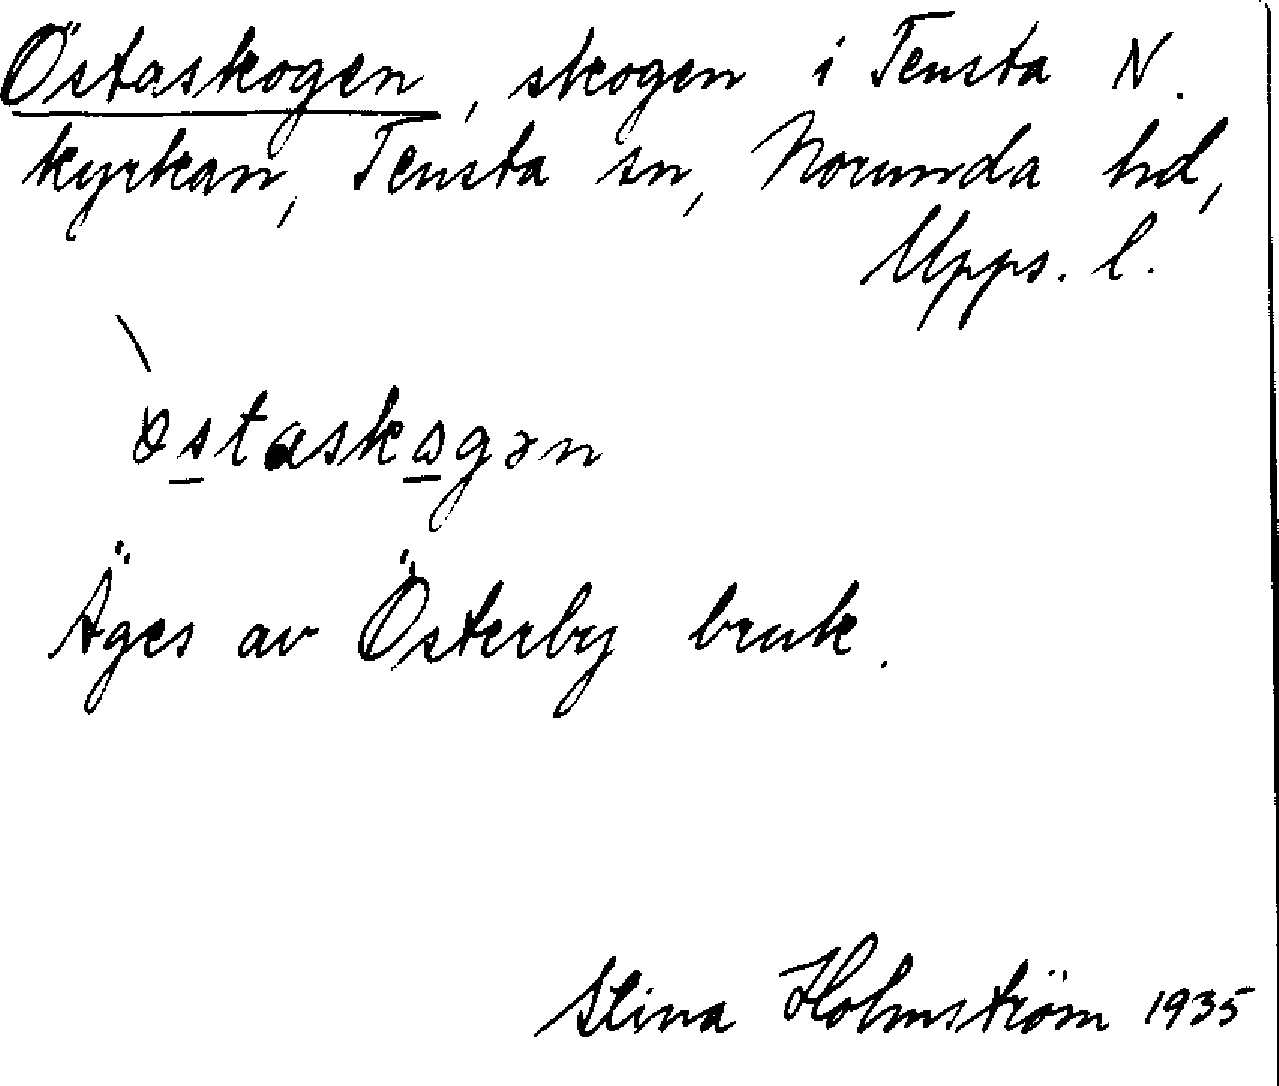 Östaskogen, skogen i Tensta N.
kyrkan, Tensta sn, Norunda hd,
Upps. l.
òstaskogən
Äges av Österby bruk.
Stina Holmström 1935